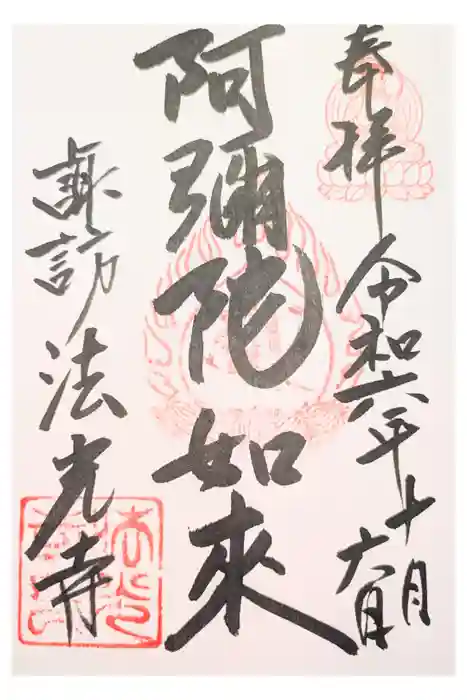 奉拝
令和六年十月
阿彌陀如來
諏訪法光寺